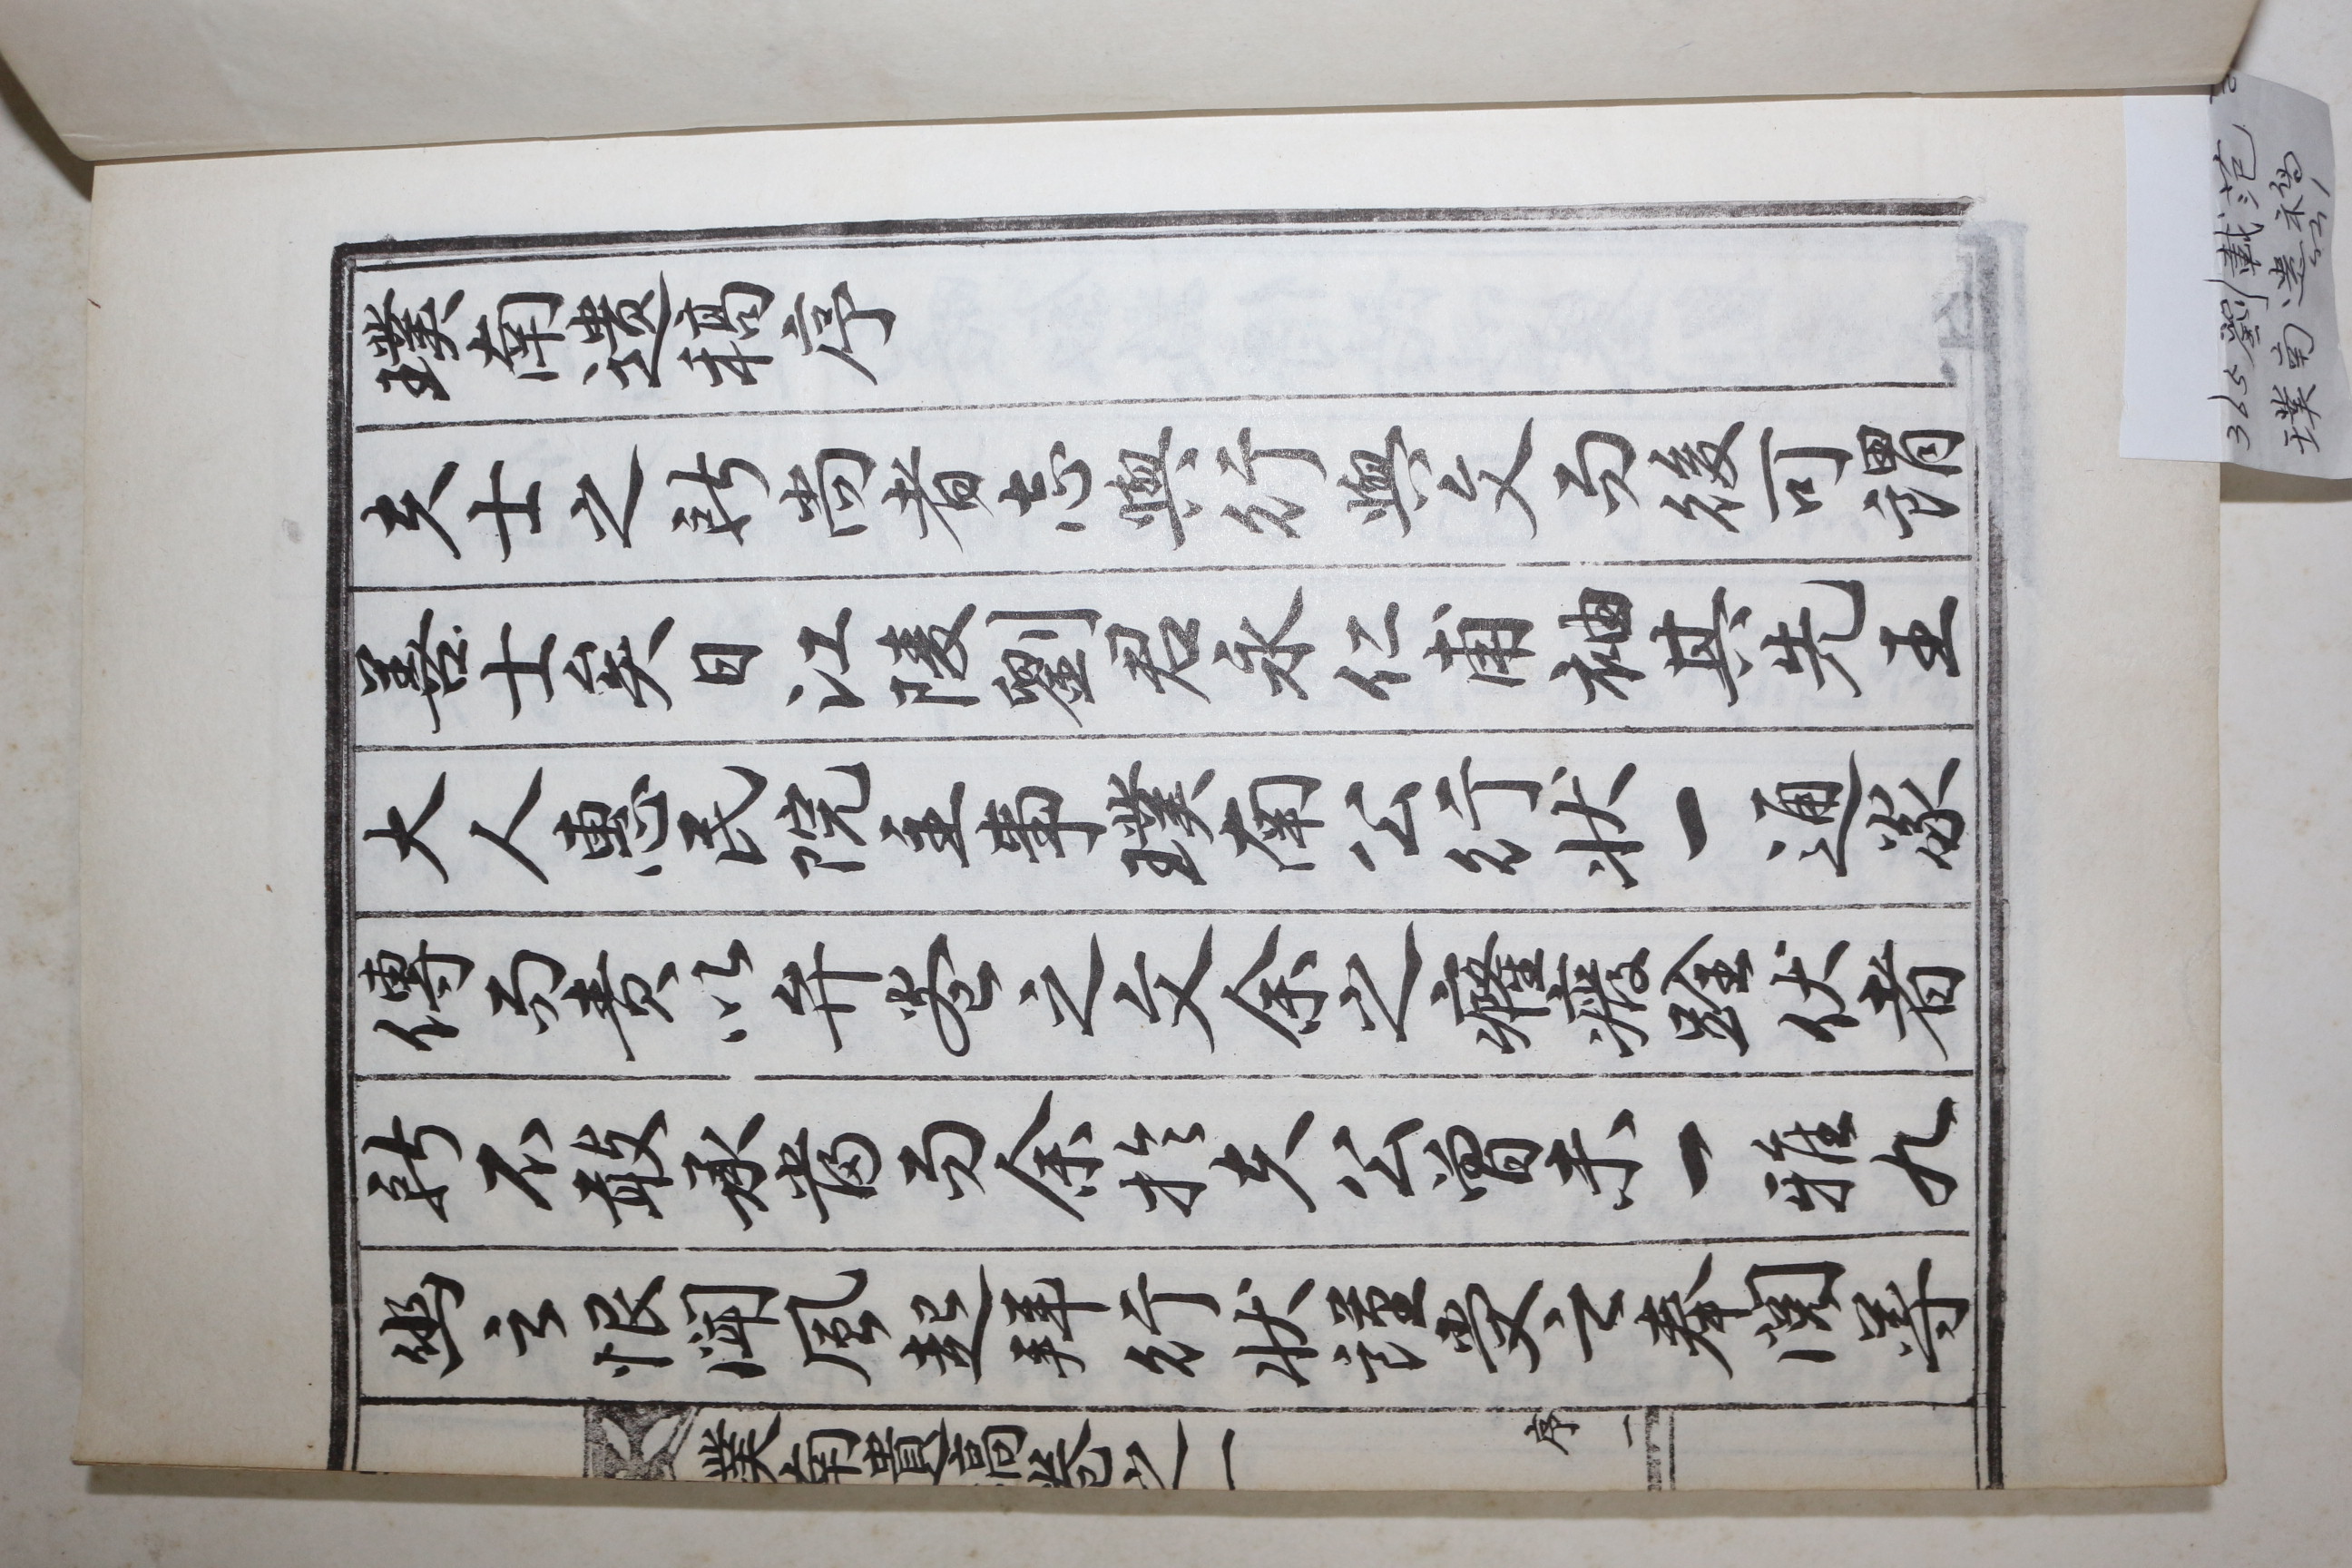 璞南遺稿序
夫士之所尚者志與行與文而後可謂
善士矣日江陵劉君永仁甫袖其先王
大人惠民院主事璞南公行狀一通家
傳而責以弁卷之文余之癃廢跧伏者
所不敢承當而余於夫公曾未一雅九
幽之恨聞風起拜行狀謹受之奉閱等
璞南遺稿卷之一
序 一
365 劉載范
璞南遺稿